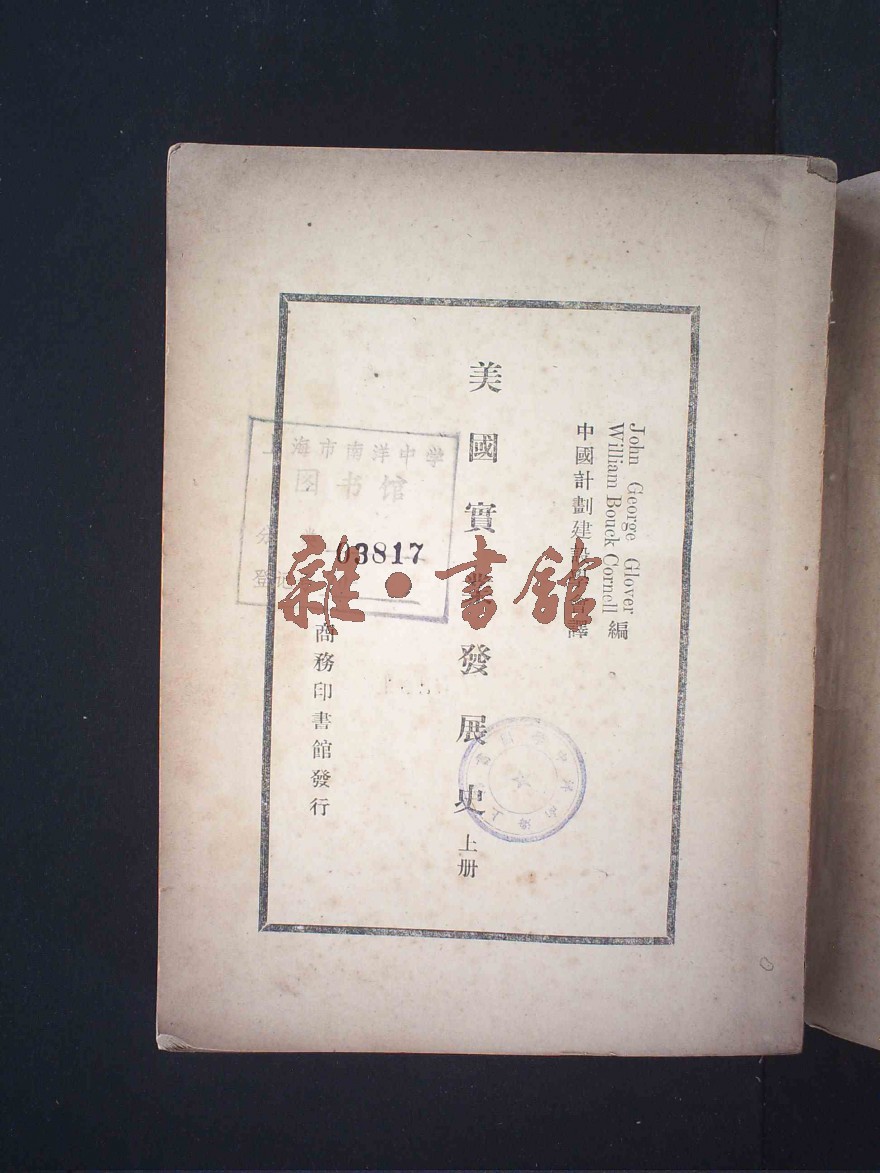 John George Glover
William Bouck Cornell 編
中國計劃建設學會譯
美國實業發展史 上册
商務印書館發行
上海市南洋中学
图书馆
分类
登记
03817
雜·書館